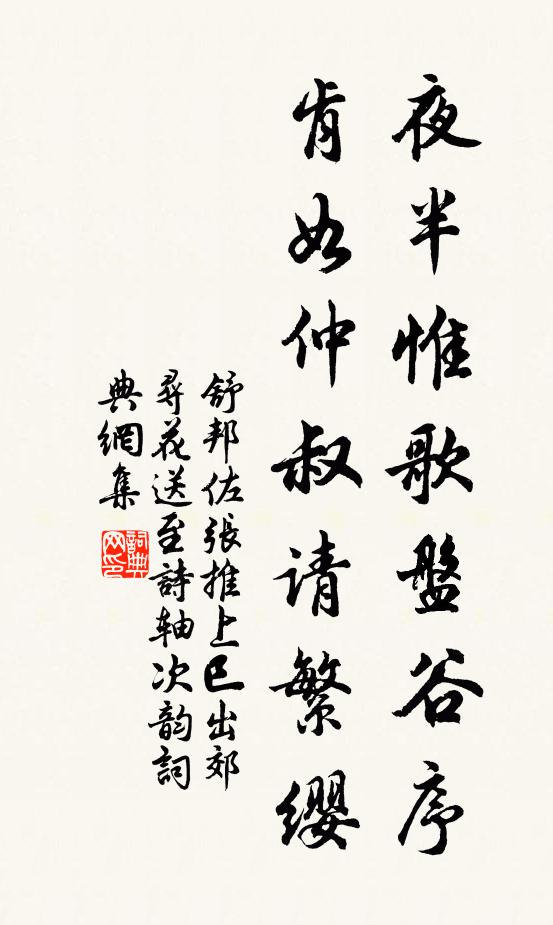 夜半惟歌盤谷序
肯如仲叔请繁缨
舒邦佐張推上巳出郊
尋花送至詩軸次韵詞
典網集
詞典网印